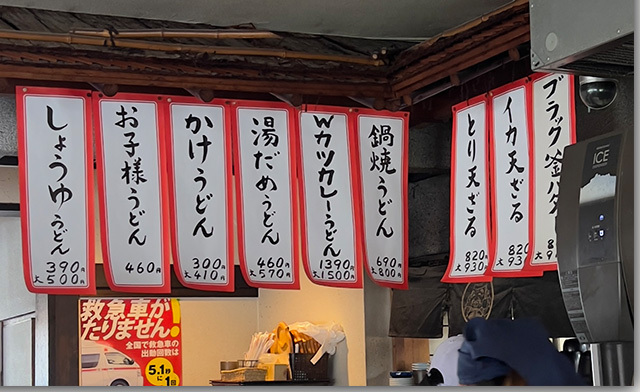 しょうゆうどん
390円
大500円
お子様うどん
460円
かけうどん
300円
大410円
湯だめうどん
460円
大570円
Wカツカレーうどん
1390円
大1500円
鍋焼うどん
690円
大800円
とり天ざる
820
大930
イカ天ざる
820
大930
ブラック釜バタ
ICE
救急車が
たりません!
全国で救急車の
出動回数は
5.1秒に
1回